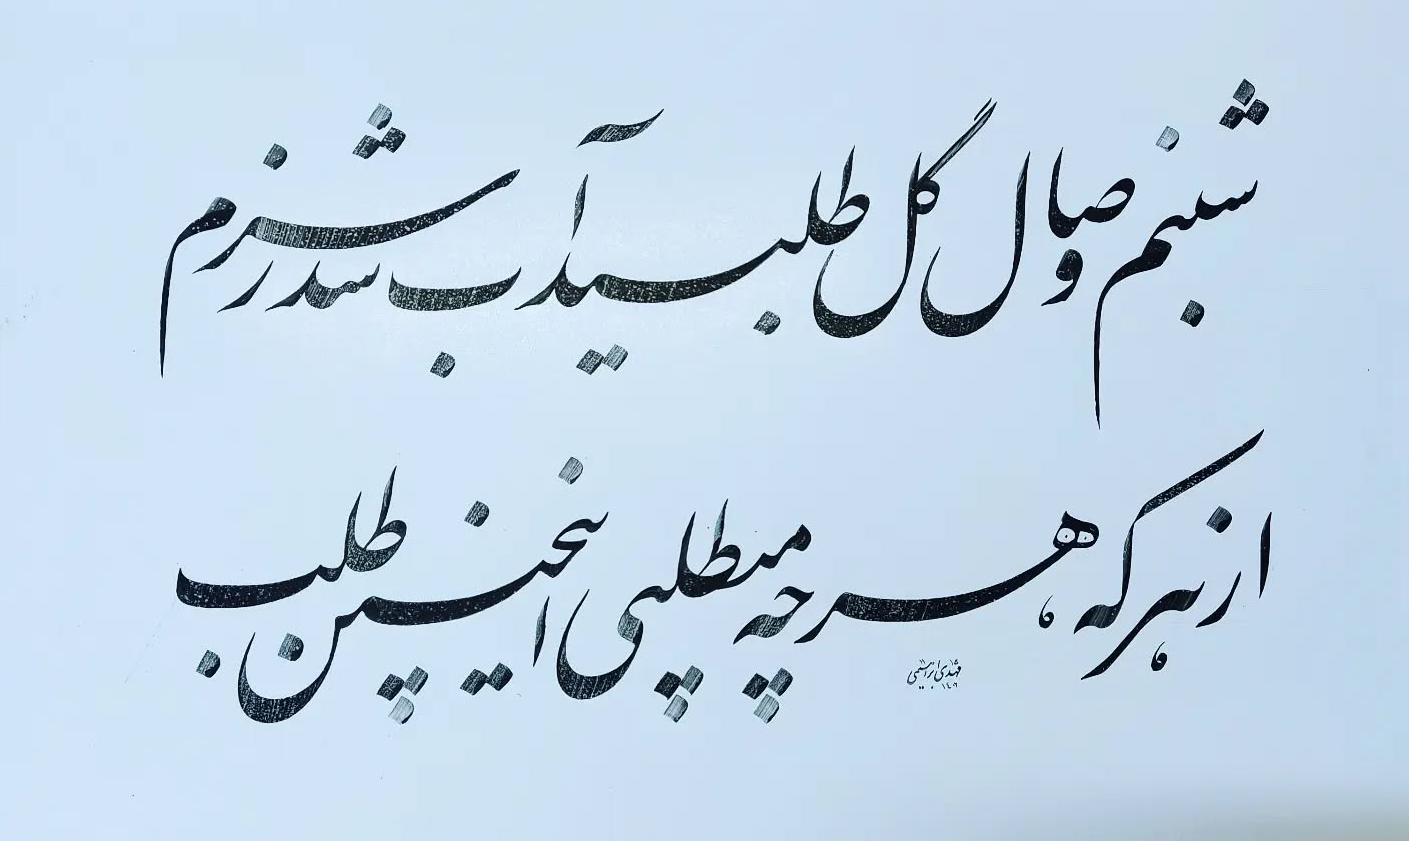 شبنم وصال گل طلبید آب شد ز شرم
از هر که هر چه میطلبی اینچنین طلب